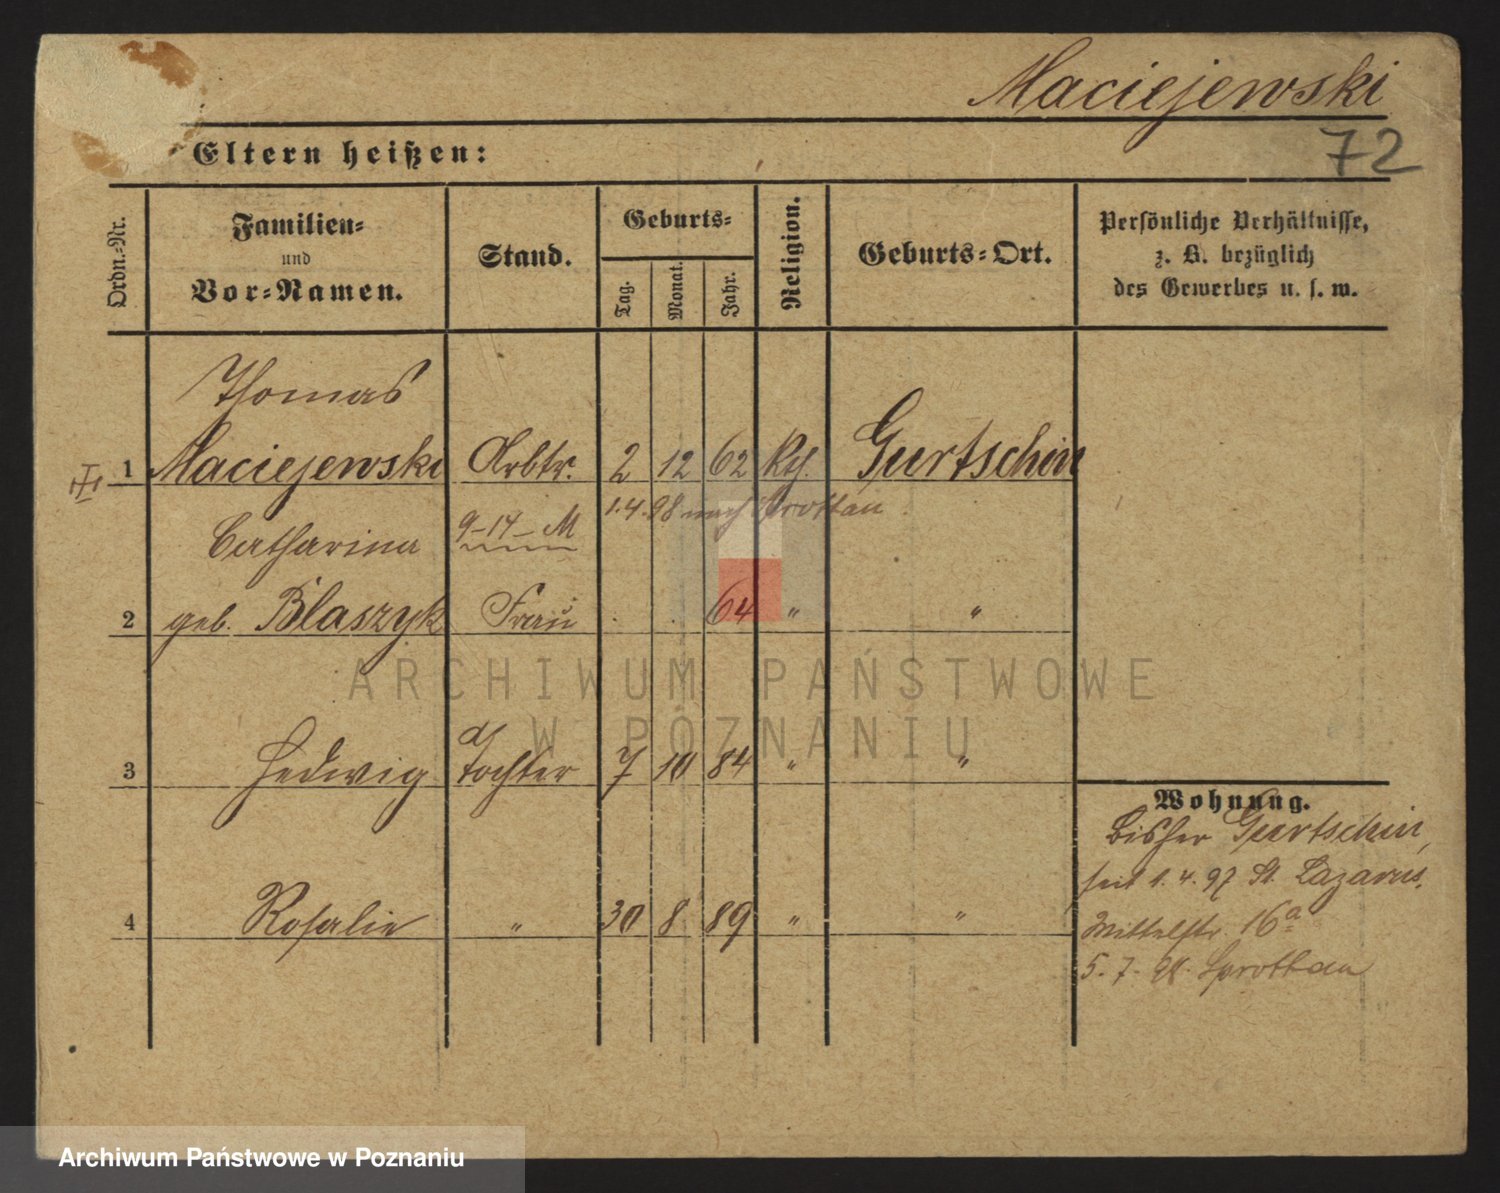 Maciejewski
72
Eltern heißen:
Ordn.-Nr.
Familien-
und
Vor-Namen.
Stand.
Geburts-
Tag.
Monat.
Jahr.
Religion.
Geburts-Ort.
Persönliche Verhältnisse,
z. B. bezüglich
des Gewerbes u. s. w.
Thomas
1 Maciejewski Arbtr. 2 12 62 Kth. Gurtschin
1.4.98 nach Sprottau
Catharina 9-14-M
2 geb. Blaszyk Frau 64 " "
3 Hedwig Tochter 7 10 84 " "
4 Rosalie " 30 8 89 " "
Wohnung.
bisher Gurtschin,
seit 1.4.97 St. Lazarus,
Mittelstr. 16a
5.7. Sprottau
ARCHIWUM PAŃSTWOWE
W POZNANIU
Archiwum Państwowe w Poznaniu